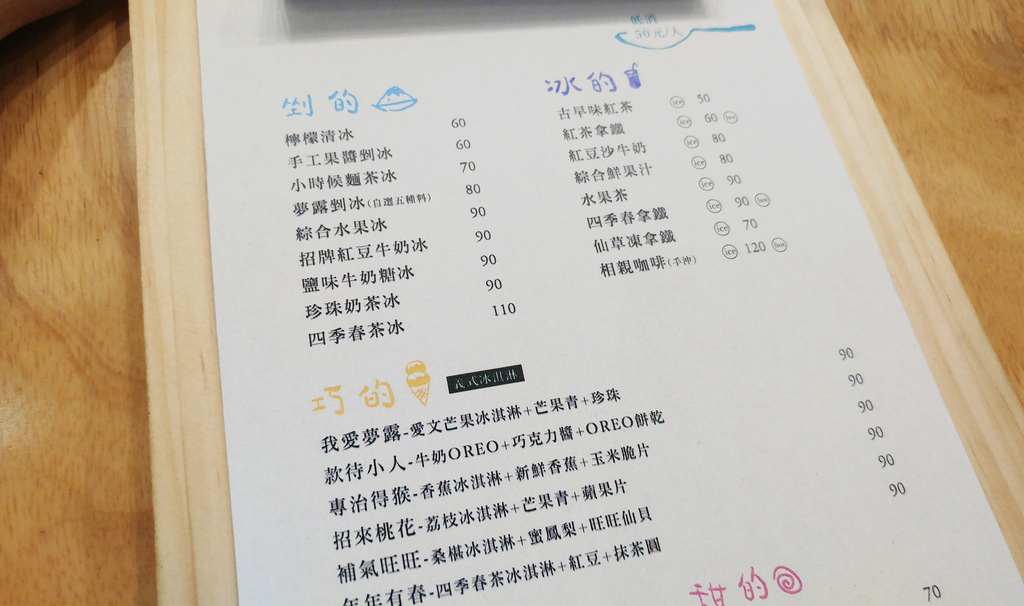 低消
50元/人
剉的
檸檬清冰 60
手工果醬剉冰 60
小時候麵茶冰 70
夢露剉冰(自選五種料) 80
綜合水果冰 90
招牌紅豆牛奶冰 90
鹽味牛奶糖冰 90
珍珠奶茶冰 90
四季春茶冰 110
冰的
古早味紅茶 ice 50
紅茶拿鐵 ice 60 hot
紅豆沙牛奶 ice 80
綜合鮮果汁 ice 80
水果茶 ice 90
四季春拿鐵 ice 90 hot
仙草凍拿鐵 ice 70
相親咖啡(手沖) ice 120 hot
巧的 義式冰淇淋
我愛夢露-愛文芒果冰淇淋+芒果青+珍珠 90
款待小人-牛奶OREO+巧克力醬+OREO餅乾 90
專治得猴-香蕉冰淇淋+新鮮香蕉+玉米脆片 90
招來桃花-荔枝冰淇淋+芒果青+蘋果片 90
補氣旺旺-桑椹冰淇淋+蜜鳳梨+旺旺仙貝 90
年年有春-四季春茶冰淇淋+紅豆+抹茶圓 90
甜的
70